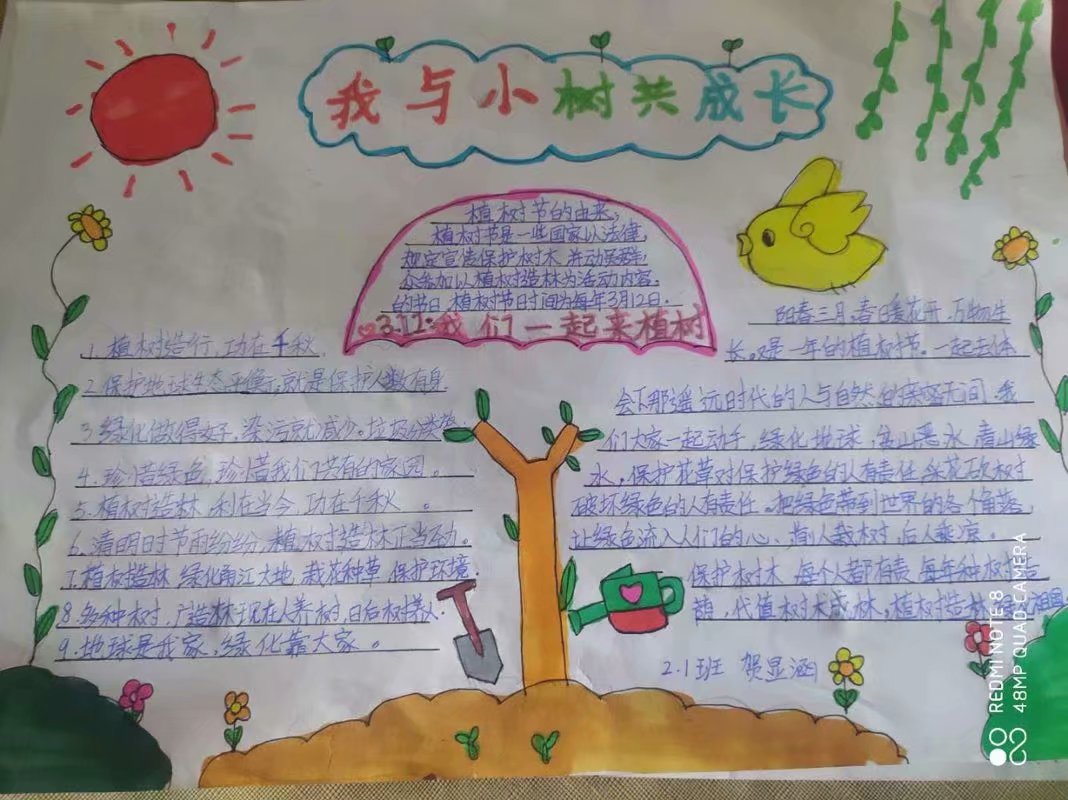 我与小树共成长
植树节的由来,
植树节是一些国家以法律
规定宣传保护树木,并动员群
众参加以植树造林为活动内容,
的节日,植树节日时间为每年3月12日.
3.12:我们一起来植树
1.植树造行,功在千秋.
2.保护地球生态平衡,就是保护人数有身
3.绿化做得好,染污就减少.垃圾分类
4.珍惜绿色,珍惜我们共有的家园。
5.植树造林,利在当今,功在千秋。
6.清明时节雨纷纷,植树造林正当
7.植树造林,绿化甬江大地,栽花种草,保护环境.
8.多种树,广造林现在人养树,日后树养人.
9.地球是我家,绿化靠大家。
阳春三月,春日暖花开,万物生
长。又是一年的植树节。一起去体
会下那遥远时代的人与自然的亲密无间,我
们大家一起动手,绿化地球,穷山恶水,青山绿
水,保护花草对保护绿色的人有责任,采花砍树
破坏绿色的人有责任。把绿色带到世界的各个角落,
让绿色流入人们的心、前人栽树,后人乘凉.
保护树木,每个人都有责,每年种树
荫,代植树木成林,植树造林
2.1班 贺显涵
REDMI NOTE 8
48MP QUAD CAMERA